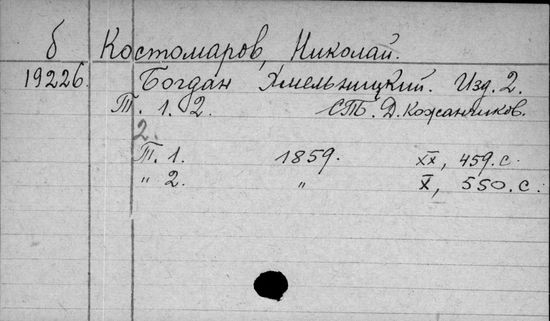 б Костомаров, Николай.
19226. Богдан Хмельницкий. Изд. 2.
Т. 1. 2. СПБ. Д. Кожанчиков.
2.
Т. 1. 1859. XX, 459. с.
" 2. " X, 550. с.